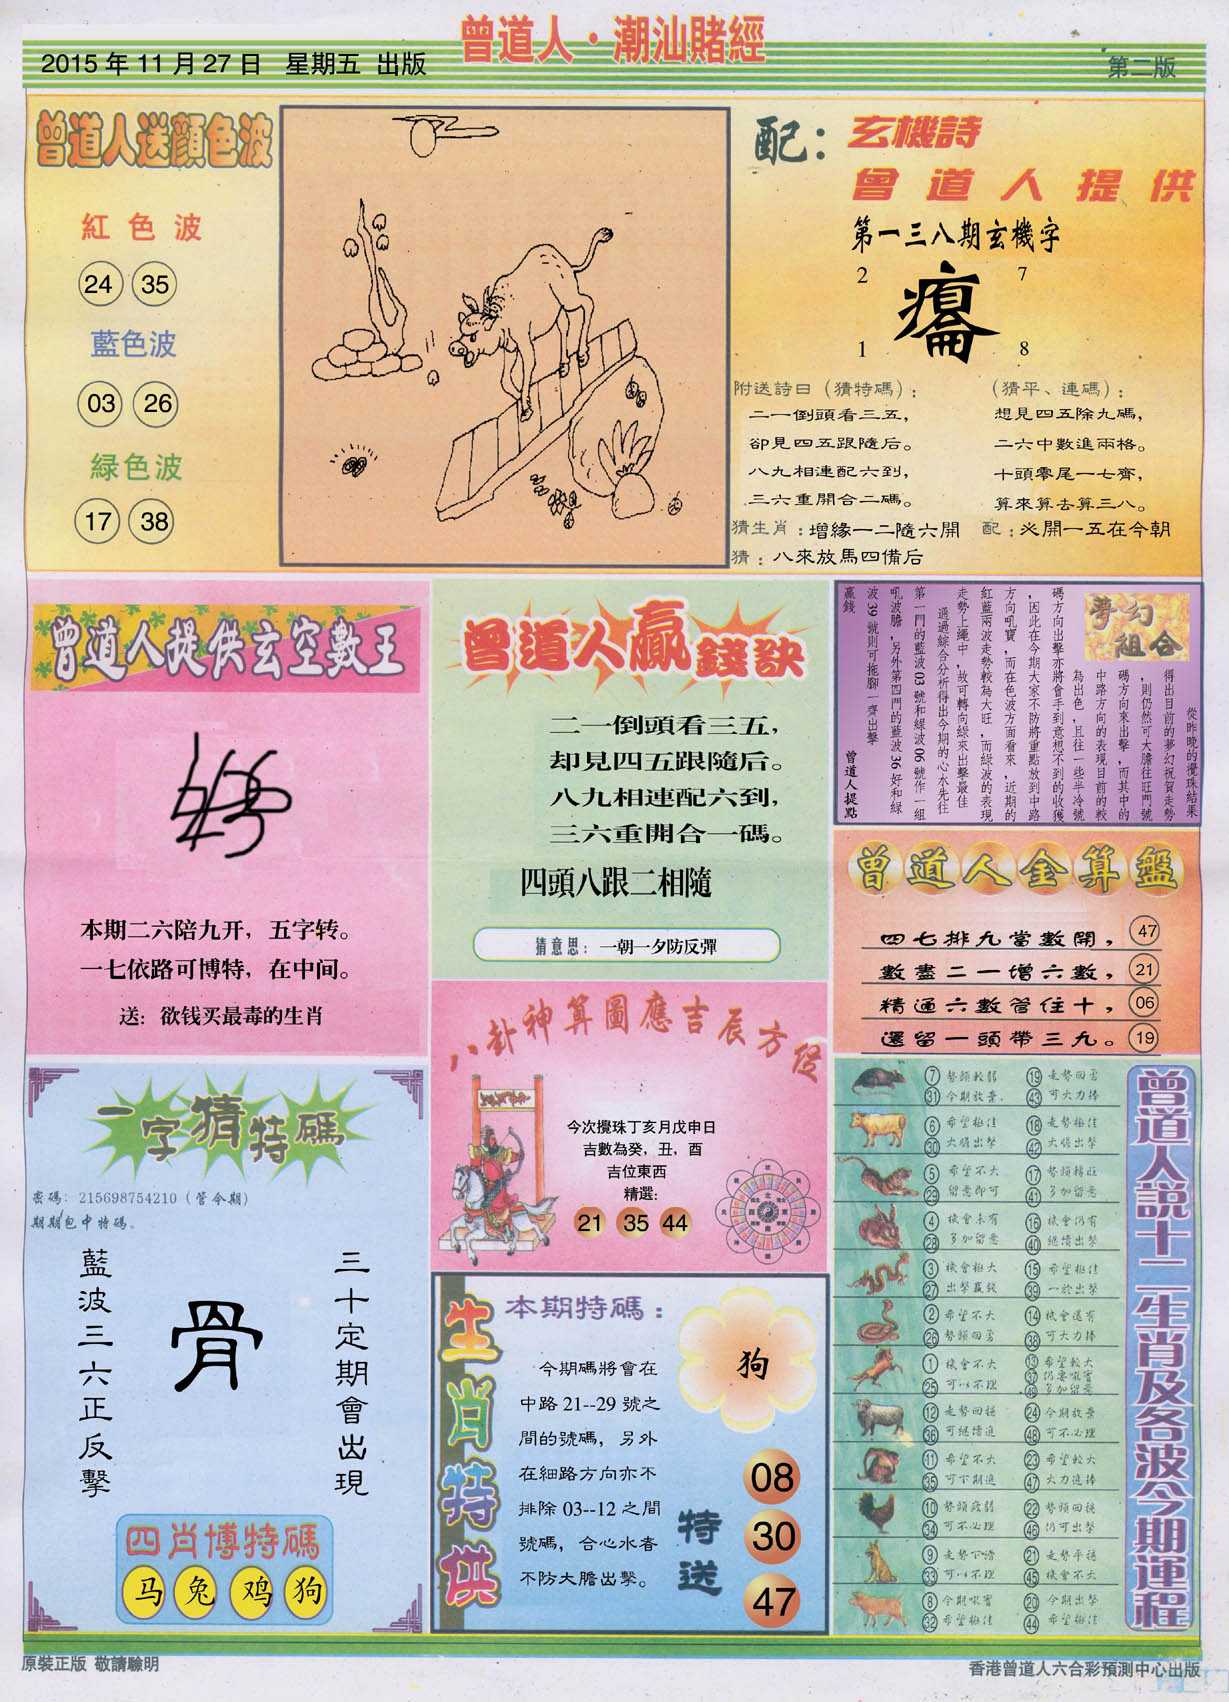 曾道人·潮汕賭經
2015年11月27日 星期五 出版
第二版
曾道人送顏色波
紅色波
24 35
藍色波
03 26
緑色波
17 38
配：玄機詩
曾道人提供
第一三八期玄機字
2 7
1 8
附送詩曰（猜特碼）：
二一倒頭看三五，
卻見四五跟隨后。
八九相連配六到，
三六重開合二碼。
（猜平、連碼）：
想見四五除九碼，
二六中數進兩格。
十頭零尾一七齊，
算來算去算三八。
猜生肖：增緣一二隨六開
配：必開一五在今朝
猜：八來放馬四備后
曾道人提供玄空數王
本期二六陪九开，五字转。
一七依路可博特，在中间。
送：欲钱买最毒的生肖
曾道人贏錢訣
二一倒頭看三五，
却見四五跟隨后。
八九相連配六到，
三六重開合一碼。
四頭八跟二相隨
猜意思：一朝一夕防反彈
夢幻組合
從昨晚的攪珠結果
得出目前的夢幻祝賀走勢
，則仍然可大膽往旺門號
碼方向來出擊，而其中的
中路方向的表現目前的較
為出色，且往一些半冷號
碼方向出擊亦將會手到意想不到的收獲
，因此在今期大家不防將重點放到中路
方向吼寶，而在色波方面看來，近期的
紅藍兩波走勢較為大旺，而綠波的表現
走勢上繩中，故可轉向綠來出擊最佳
通過綜合分析得出今期的心水先往
第一門的藍波03號和綠波06號作一組
吼波膽，另外第四門的藍波36好和綠
波39號則可拖腳一齊出擊
贏錢
曾道人提點
曾道人金算盤
四七排九當數開， 47
數盡二一增六數， 21
精通六數管住十， 06
還留一頭帶三九。 19
八卦神算圖應吉辰方位
今次攪珠丁亥月戊申日
吉數為癸，丑，酉
吉位東西
精選：
21 35 44
一字猜特碼
密碼：215698754210（管令期）
期期包中特碼。
三十定期會出現
骨
藍波三六正反擊
四肖博特碼
马 兔 鸡 狗
生肖特供
本期特碼：
今期碼將會在
中路21--29號之
間的號碼，另外
在細路方向亦不
排除03--12之間
號碼，合心水者
不防大膽出擊。
狗
特送
08
30
47
曾道人説十二生肖及各波今期運程
7 勢頭較弱 19 走勢回勇
31 今期放棄 43 可大力捧
6 希望極佳 18 走勢極佳
30 大膽出擊 42 大膽出擊
5 希望不大 17 勢頭轉旺
29 留意即可 41 多加留意
4 機會未有 16 機會仍有
28 多加留意 40 繼續出擊
3 機會極大 15 希望極佳
27 出擊贏錢 39 一於出擊
2 希望不大 14 機會還有
26 勢頭回勇 38 可大力捧
1 機會不大 13 希望較大
25 可以不理 37 仍要吼實
49 多加留意
12 走勢回穩 24 今期放棄
36 可繼續追 48 可不必理
11 希望不大 23 希望較大
35 可下期追 47 大力追捧
10 勢頭疲弱 22 勢頭回穩
34 可不必理 46 仍可出擊
9 走勢下滑 21 走勢平穩
33 可以不理 45 機會不大
8 今期吼實 20 今期出擊
32 希望極佳 44 希望極佳
原裝正版 敬請驗明
香港曾道人六合彩預測中心出版